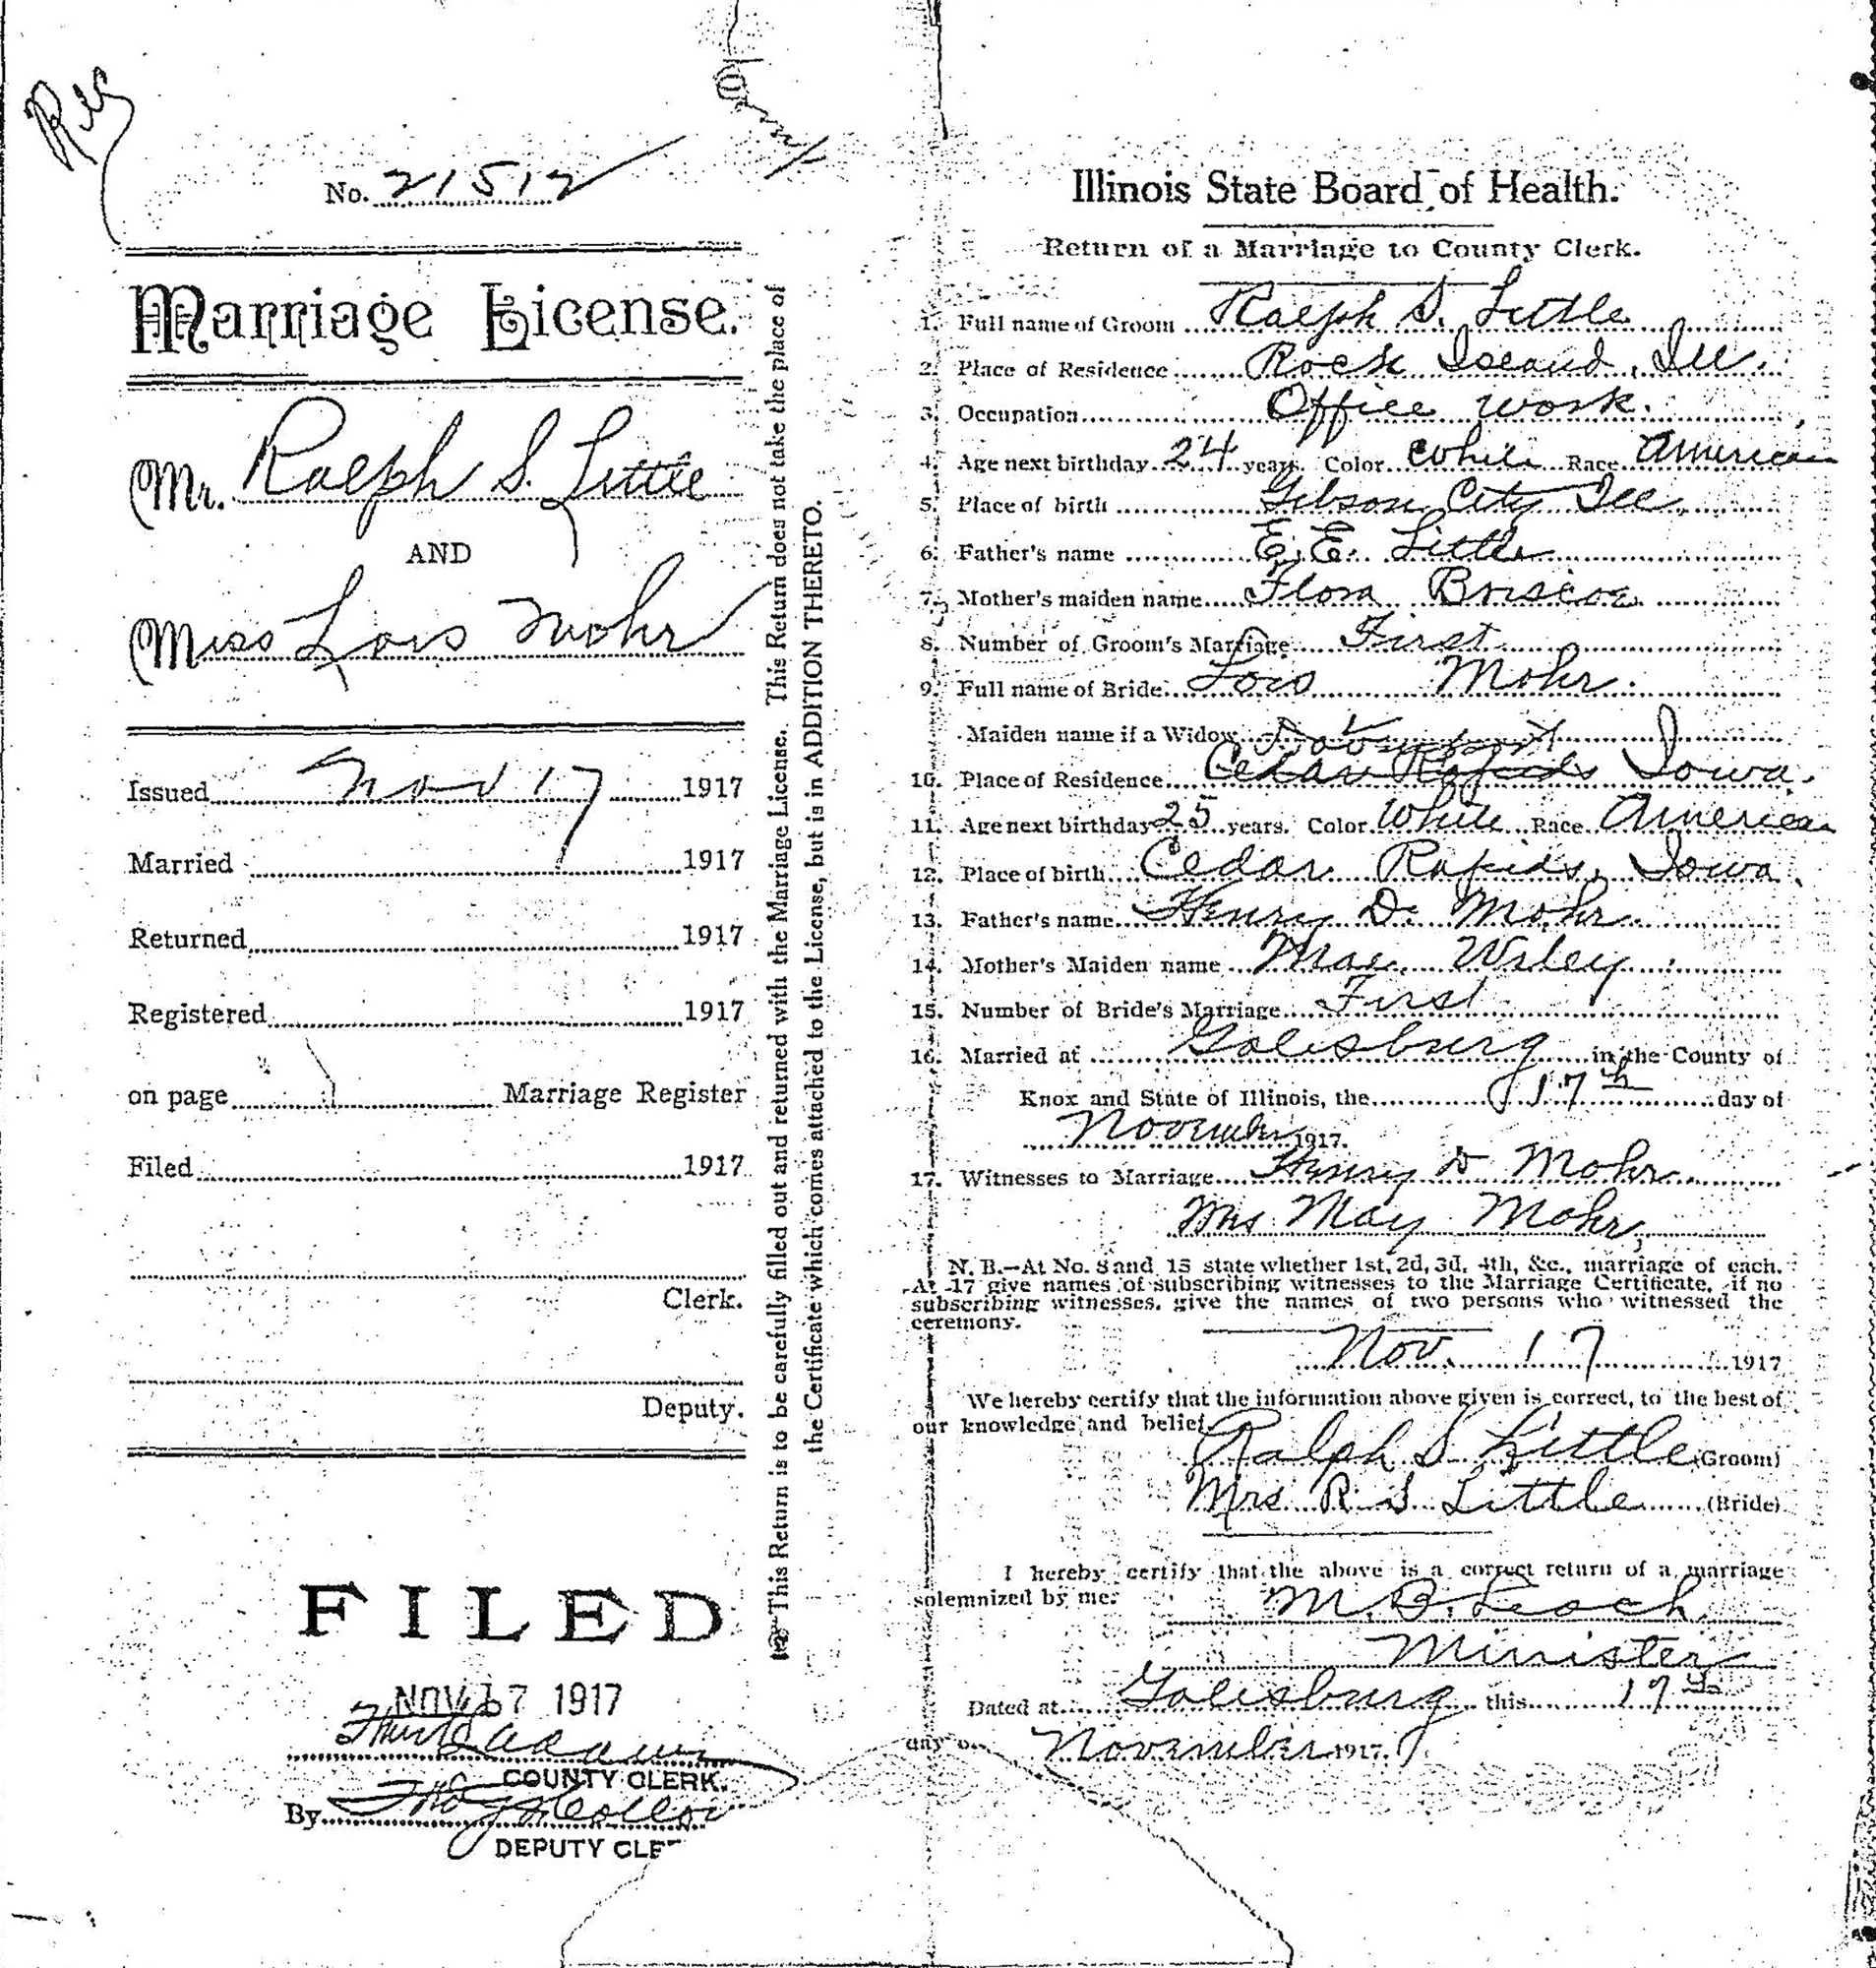 Rec
No. 21512
Marriage License.
Mr. Ralph S. Little
AND
Miss Lois Mohr
Issued Nov 17 1917
Married 1917
Returned 1917
Registered 1917
on page Marriage Register
Filed 1917
Clerk.
Deputy.
FILED
NOV 17 1917
COUNTY CLERK.
By
DEPUTY CLE
This Return is to be carefully filled out and returned with the Marriage License. This Return does not take the place of
the Certificate which comes attached to the License, but is in ADDITION THERETO.
Illinois State Board of Health.
Return of a Marriage to County Clerk.
1. Full name of Groom Ralph S. Little
2. Place of Residence Rock Island, Ill.
3. Occupation Office work.
4. Age next birthday 24 years. Color White Race American
5. Place of birth Gibson City Ill.
6. Father's name E. E. Little
7. Mother's maiden name Flora Briscoe
8. Number of Groom's Marriage First
9. Full name of Bride Lois Mohr.
Maiden name if a Widow Davenport
10. Place of Residence Cedar Rapids Iowa.
11. Age next birthday 25 years. Color White Race American
12. Place of birth Cedar Rapids, Iowa.
13. Father's name Henry D. Mohr
14. Mother's Maiden name May Wiley
15. Number of Bride's Marriage First
16. Married at Galesburg in the County of
Knox and State of Illinois, the 17th day of
November 1917.
17. Witnesses to Marriage Henry D Mohr
Mrs May Mohr,
N. B.—At No. 8 and 15 state whether 1st, 2d, 3d, 4th, &c., marriage of each.
At 17 give names of subscribing witnesses to the Marriage Certificate, if no
subscribing witnesses, give the names of two persons who witnessed the
ceremony.
Nov. 17 1917
We hereby certify that the information above given is correct, to the best of
our knowledge and belief.
Ralph S Little (Groom)
Mrs R S Little (Bride)
I hereby certify that the above is a correct return of a marriage
solemnized by me.
M. B. Leach
Minister
Dated at Galesburg this 17th
day of November 1917.